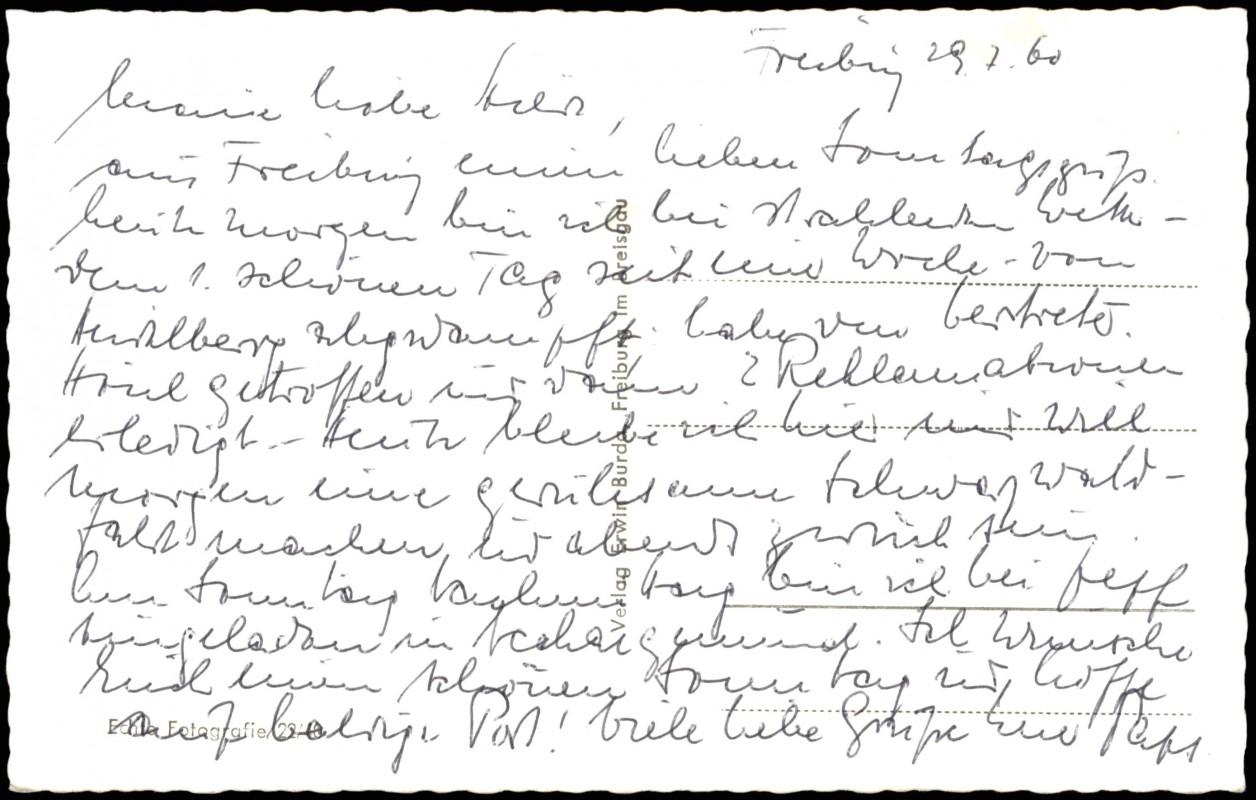 Freiburg 29.7.60
Meine liebe
aus Freiburg einen lieben Sonntagsgruß.
heute morgen bin ich bei strahlendem Wetter -
dem 1. schönen Tag seit einer Woche - von
Heidelberg abgedampft. habe den Vertreter
getroffen und 2 Reklamationen
erledigt - Heute bleibe ich hier und will
morgen eine geruhsame Schwarzwald-
fahrt machen und abends zurück sein.
Am Sonntag Nachmittag bin ich bei
eingeladen in Neckargemünd. Ich wünsche
Euch einen schönen Sonntag und hoffe
auf baldige Post! Viele liebe Grüße Euer Paps
Verlag Erwin Burda, Freiburg im Breisgau
Echte Fotografie